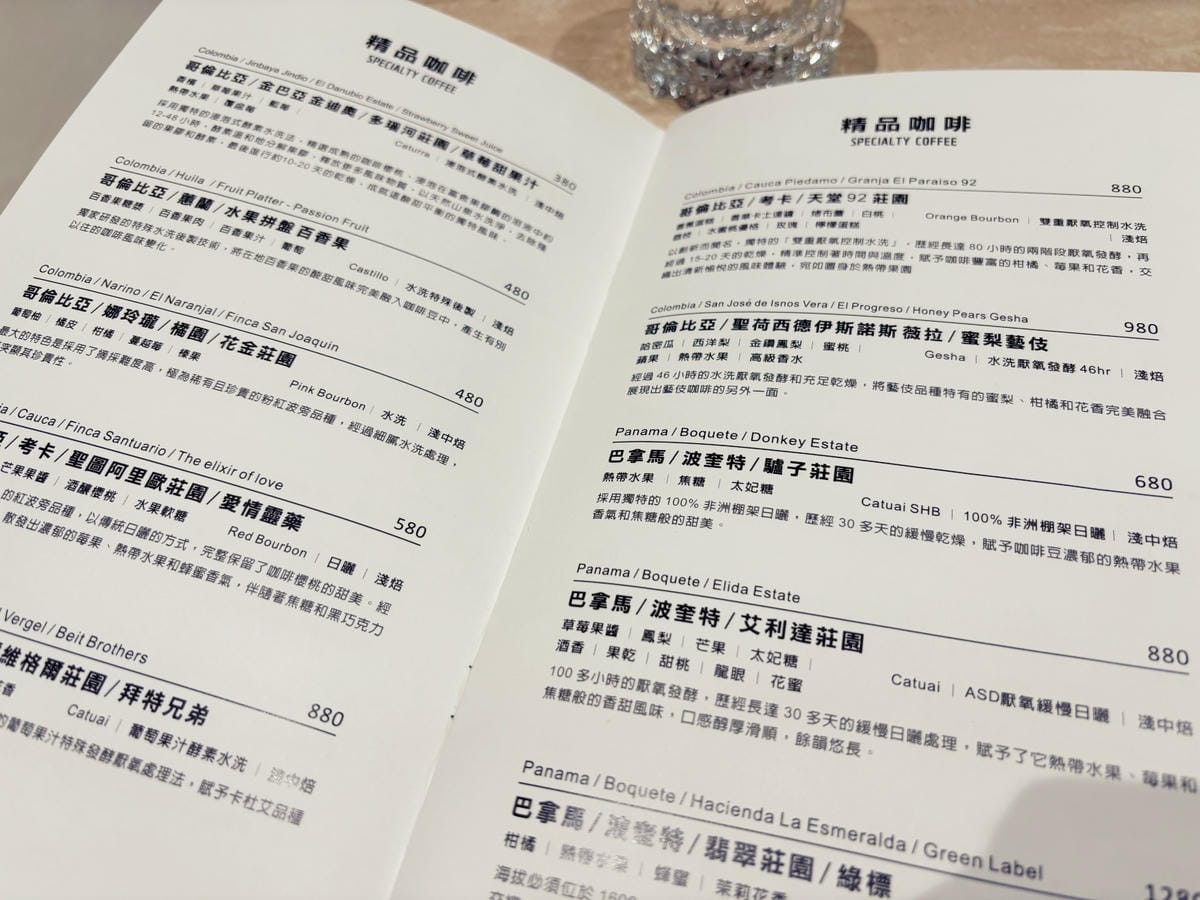 精品咖啡
SPECIALTY COFFEE
Colombia / Jinbaya Jindio / El Danubio Estate / Strawberry Sweet Juice
哥倫比亞 / 金巴亞金迪奧 / 多瑞河莊園 / 草莓甜果汁
380
香檳 | 草莓果汁 | 藍莓 |
熱帶水果 | 覆盆莓
Caturra | 浸泡式酵素水洗 | 淺中焙
採用獨特的浸泡式酵素水洗法，精選成熟的咖啡櫻桃，浸泡在富含果膠酶的溶液中約
12-48 小時，酵素溫和地分解果膠，釋放更多風味物質，以天然山泉水洗淨，去除殘
留的果膠和酵素，最後進行約10-20 天的乾燥，成就這酸甜平衡的獨特風味。
Colombia / Huila / Fruit Platter - Passion Fruit
哥倫比亞 / 蕙蘭 / 水果拼盤 百香果
480
百香果糖漿 | 百香果肉 | 百香果汁 | 葡萄
Castillo | 水洗特殊後製 | 淺焙
獨家研發的特殊水洗後製技術，將在地百香果的酸甜風味完美融入咖啡豆中，產生有別
以往的咖啡風味變化。
Colombia / Narino / El Naranjal / Finca San Joaquin
哥倫比亞 / 娜玲瓏 / 橘園 / 花金莊園
480
葡萄柚 | 橘皮 | 柑橘 | 蔓越莓 | 榛果
Pink Bourbon | 水洗 | 淺中焙
最大的特色是採用了摘採難度高，極為稀有且珍貴的粉紅波旁品種，經過細膩水洗處理，
突顯其珍貴性。
/ Cauca / Finca Santuario / The elixir of love
/ 考卡 / 聖圖阿里歐莊園 / 愛情靈藥
580
芒果果醬 | 酒釀櫻桃 | 水果軟糖
Red Bourbon | 日曬 | 淺焙
的紅波旁品種，以傳統日曬的方式，完整保留了咖啡櫻桃的甜美。經
散發出濃郁的莓果、熱帶水果和蜂蜜香氣，伴隨著焦糖和黑巧克力
Vergel / Beit Brothers
維格爾莊園 / 拜特兄弟
880
Catuai | 葡萄果汁酵素水洗 | 淺中焙
的葡萄果汁特殊發酵厭氧處理法，賦予卡杜艾品種
精品咖啡
SPECIALTY COFFEE
Colombia / Cauca Piedamo / Granja El Paraiso 92
880
哥倫比亞 / 考卡 / 天堂 92 莊園
Orange Bourbon | 雙重厭氧控制水洗
香蕉蛋糕 | 香草卡士達醬 | 烤布蕾 | 白桃 |
水蜜桃優格 | 玫瑰 | 檸檬蛋糕
| 淺焙
以創新而聞名，獨特的「雙重厭氧控制水洗」，歷經長達 80 小時的兩階段厭氧發酵，再
經過 15-20 天的乾燥，精準控制著時間與溫度，賦予咖啡豐富的柑橘、莓果和花香，交
織出清新愉悅的風味體驗，宛如置身於熱帶果園
Colombia / San José de Isnos Vera / El Progreso / Honey Pears Gesha
980
哥倫比亞 / 聖荷西德伊斯諾斯 薇拉 / 蜜梨藝伎
哈密瓜 | 西洋梨 | 金鑽鳳梨 | 蜜桃 |
蘋果 | 熱帶水果 | 高級香水
Gesha | 水洗厭氧發酵 46hr | 淺焙
經過 46 小時的水洗厭氧發酵和充足乾燥，將藝伎品種特有的蜜梨、柑橘和花香完美融合
展現出藝伎咖啡的另外一面。
Panama / Boquete / Donkey Estate
680
巴拿馬 / 波奎特 / 驢子莊園
熱帶水果 | 焦糖 | 太妃糖
Catuai SHB | 100% 非洲棚架日曬 | 淺中焙
採用獨特的 100% 非洲棚架日曬，歷經 30 多天的緩慢乾燥，賦予咖啡豆濃郁的熱帶水果
香氣和焦糖般的甜美。
Panama / Boquete / Elida Estate
巴拿馬 / 波奎特 / 艾利達莊園
880
草莓果醬 | 鳳梨 | 芒果 | 太妃糖 |
酒香 | 果乾 | 甜桃 | 龍眼 | 花蜜
Catuai | ASD厭氧緩慢日曬 | 淺中焙
100 多小時的厭氧發酵，歷經長達 30 多天的緩慢日曬處理，賦予了它熱帶水果、莓果和
焦糖般的香甜風味，口感醇厚滑順，餘韻悠長。
Panama / Boquete / Hacienda La Esmeralda / Green Label
巴拿馬 / 波奎特 / 翡翠莊園 / 綠標
柑橘 | 熱帶水果 | 蜂蜜 | 茉莉花香
海拔必須位於